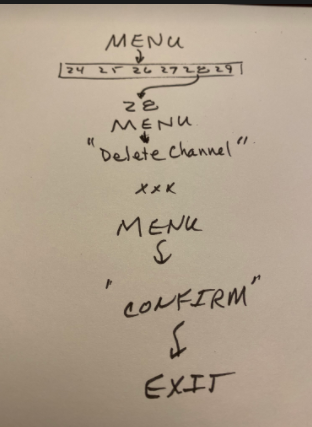 MENU
24 25 26 27 28 29
28
MENU
"Delete Channel"
xxx
MENU
"CONFIRM"
EXIT